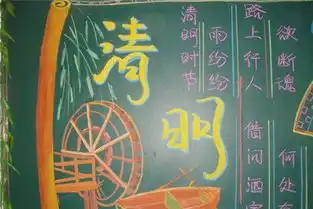 清明
清明时节
雨纷纷
路上行人
欲断魂
借问酒
何处